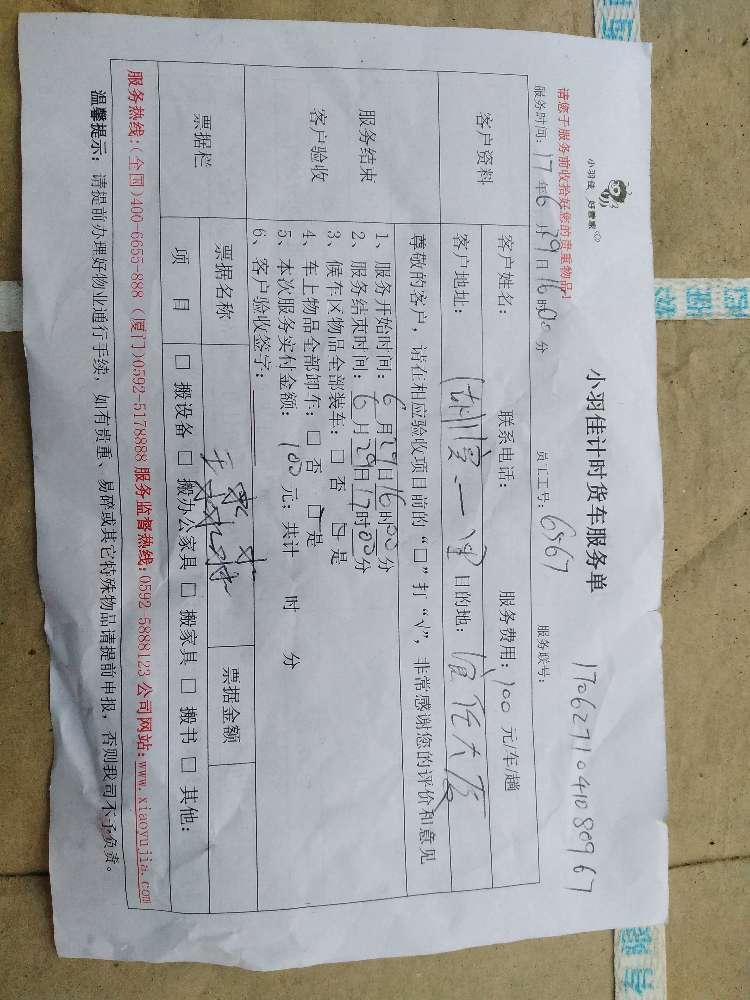 小羽佳 好管家
小羽佳计时货车服务单
1706271041080967
请您于服务前收拾好您的贵重物品！
服务时间：17年6月29日16时00分 员工工号：6967 服务联号：
客户资料
客户姓名： 联系电话： 服务费用：100 元/车/趟
客户地址：湖滨一里 目的地：谊佳大厦
服务结束
客户验收
尊敬的客户，请在相应验收项目前的“□”打“√”，非常感谢您的评价和意见
1、服务开始时间：6月29日16时00分
2、服务结束时间：6月29日17时00分
3、候车区物品全部装车：□ 否 □ 是
4、车上物品全部卸车：□ 否 □ 是
5、本次服务实付金额：100 元；共计 时 分
6、客户验收签字：
票据栏
票据名称 票据金额
项 目 □ 搬设备 □ 搬办公家具 □ 搬家具 □ 搬书 □ 其他：
服务热线：（全国）400-6655-888（厦门）0592-5178888 服务监督热线：0592-5888123 公司网站：www.xiaoyujia.com
温馨提示：请提前办理好物业通行手续，如有贵重、易碎或其它特殊物品请提前申报，否则我司不予负责。